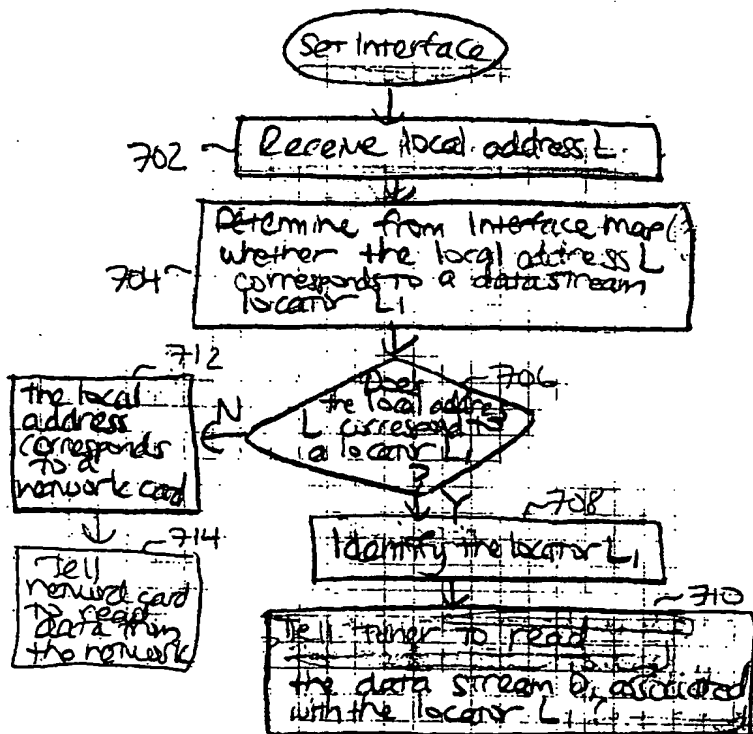 Set Interface
702
Receive local address L
704
Determine from Interface map(
whether the local address L
corresponds to a data stream
locator L1
706
Does
the local address
L correspond to
a locator L1
?
N
712
the local
address
corresponds
to a
network card
714
Tell
network card
to read
data from
the network
Y
708
Identify the locator L1
710
Tell tuner to read
the data stream D1 associated
with the locator L1